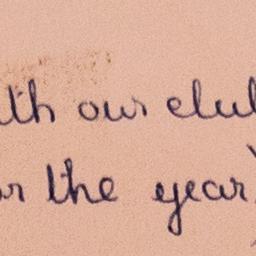 our club
the year